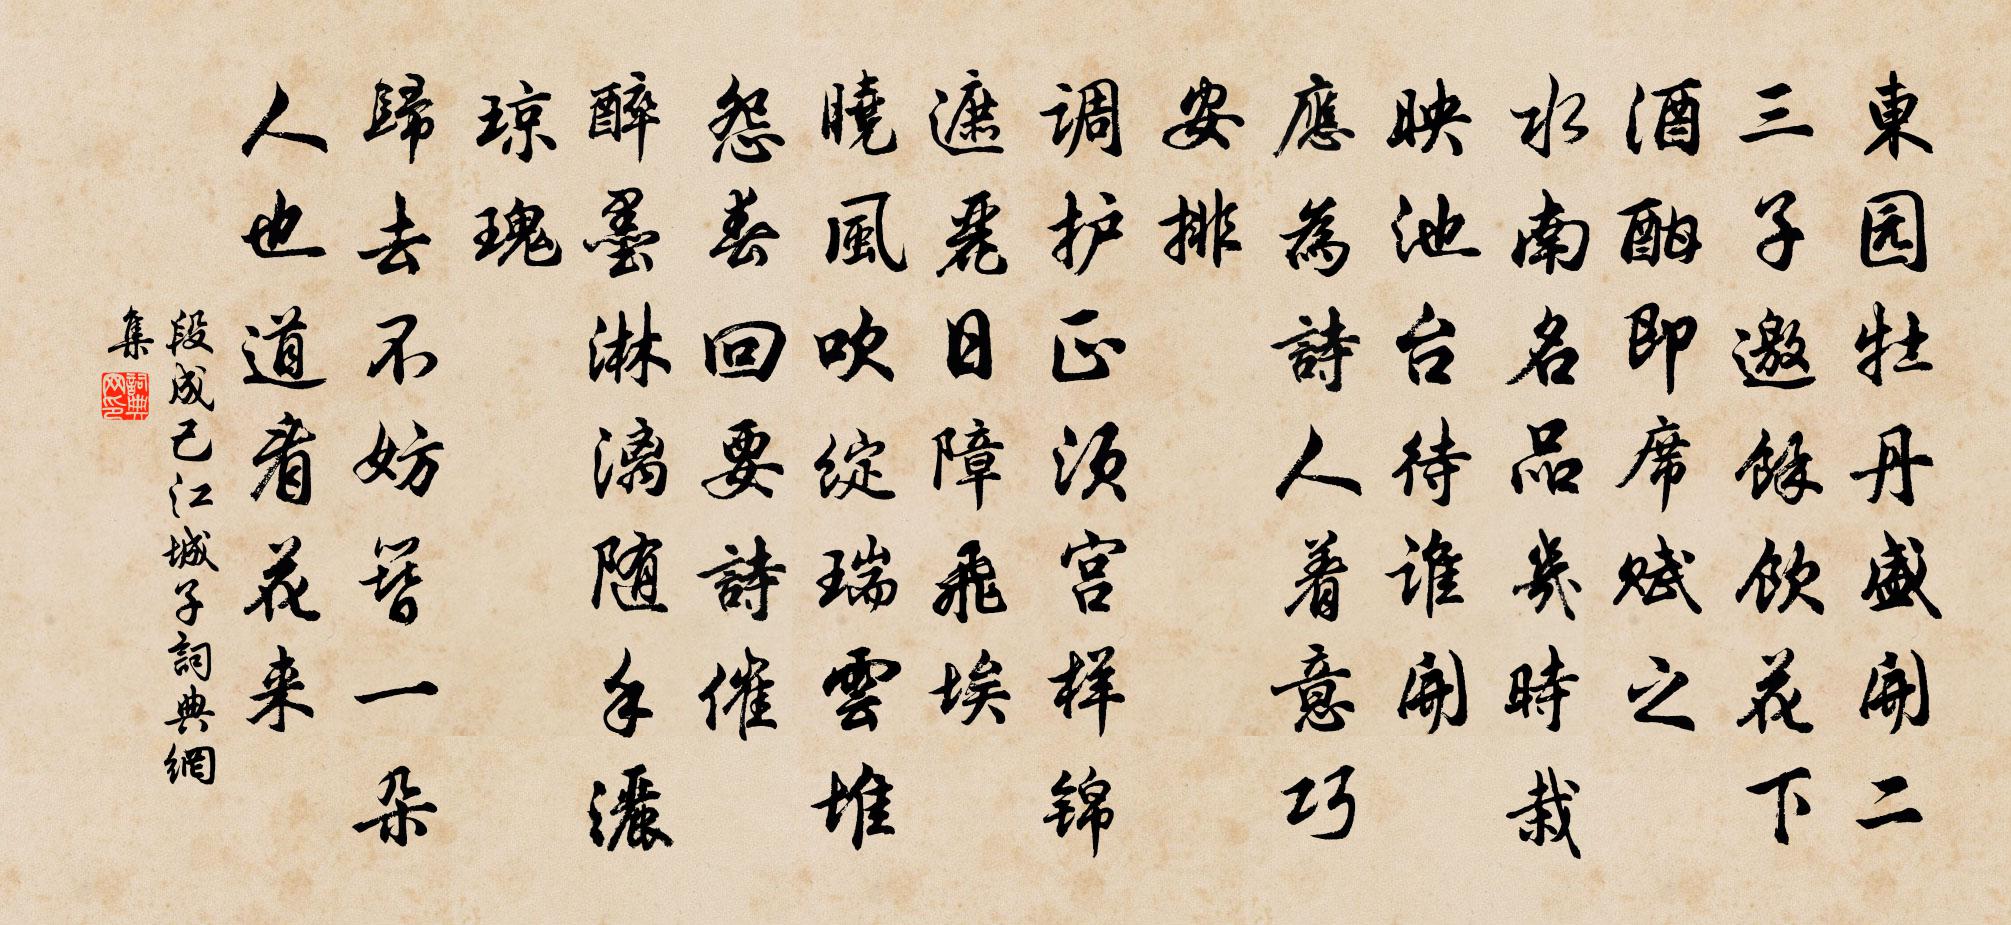 東园牡丹盛開二
三子邀餘飲花下
酒酣即席赋之
水南名品幾時栽
映池台待谁開
應為詩人着意巧
安排
调护正须宫样锦
遮麗日障飛埃
曉風吹綻瑞雲堆
怨春回要詩催
醉墨淋漓随手灑
琼瑰
歸去不妨簪一朵
人也道看花来
段成己江城子詞典網
集
詞典网印